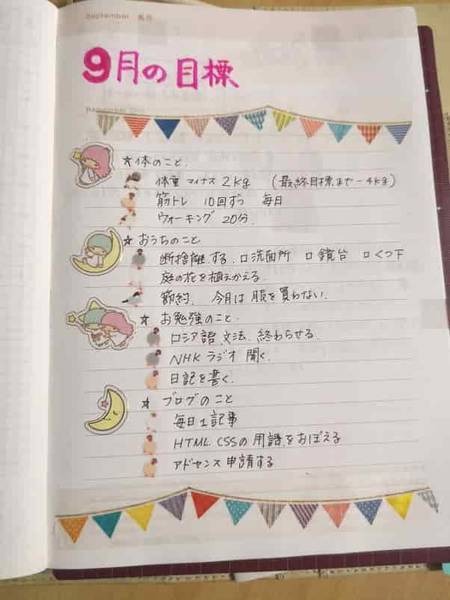 September 長月
9月の目標
September
☆体のこと.
体重 マイナス 2kg (最終目標まで-4kg)
筋トレ 10回ずつ 毎日
ウォーキング 20分.
☆おうちのこと
断捨離する. □洗面所 □鏡台 □くつ下
庭の花を植えかえる
節約. 今月は服を買わない.
☆お勉強のこと.
ロシア語 文法 終わらせる.
NHK ラジオ 聞く.
日記を書く.
☆ブログのこと
毎日1記事
HTML CSSの用語をおぼえる
アドセンス 申請する